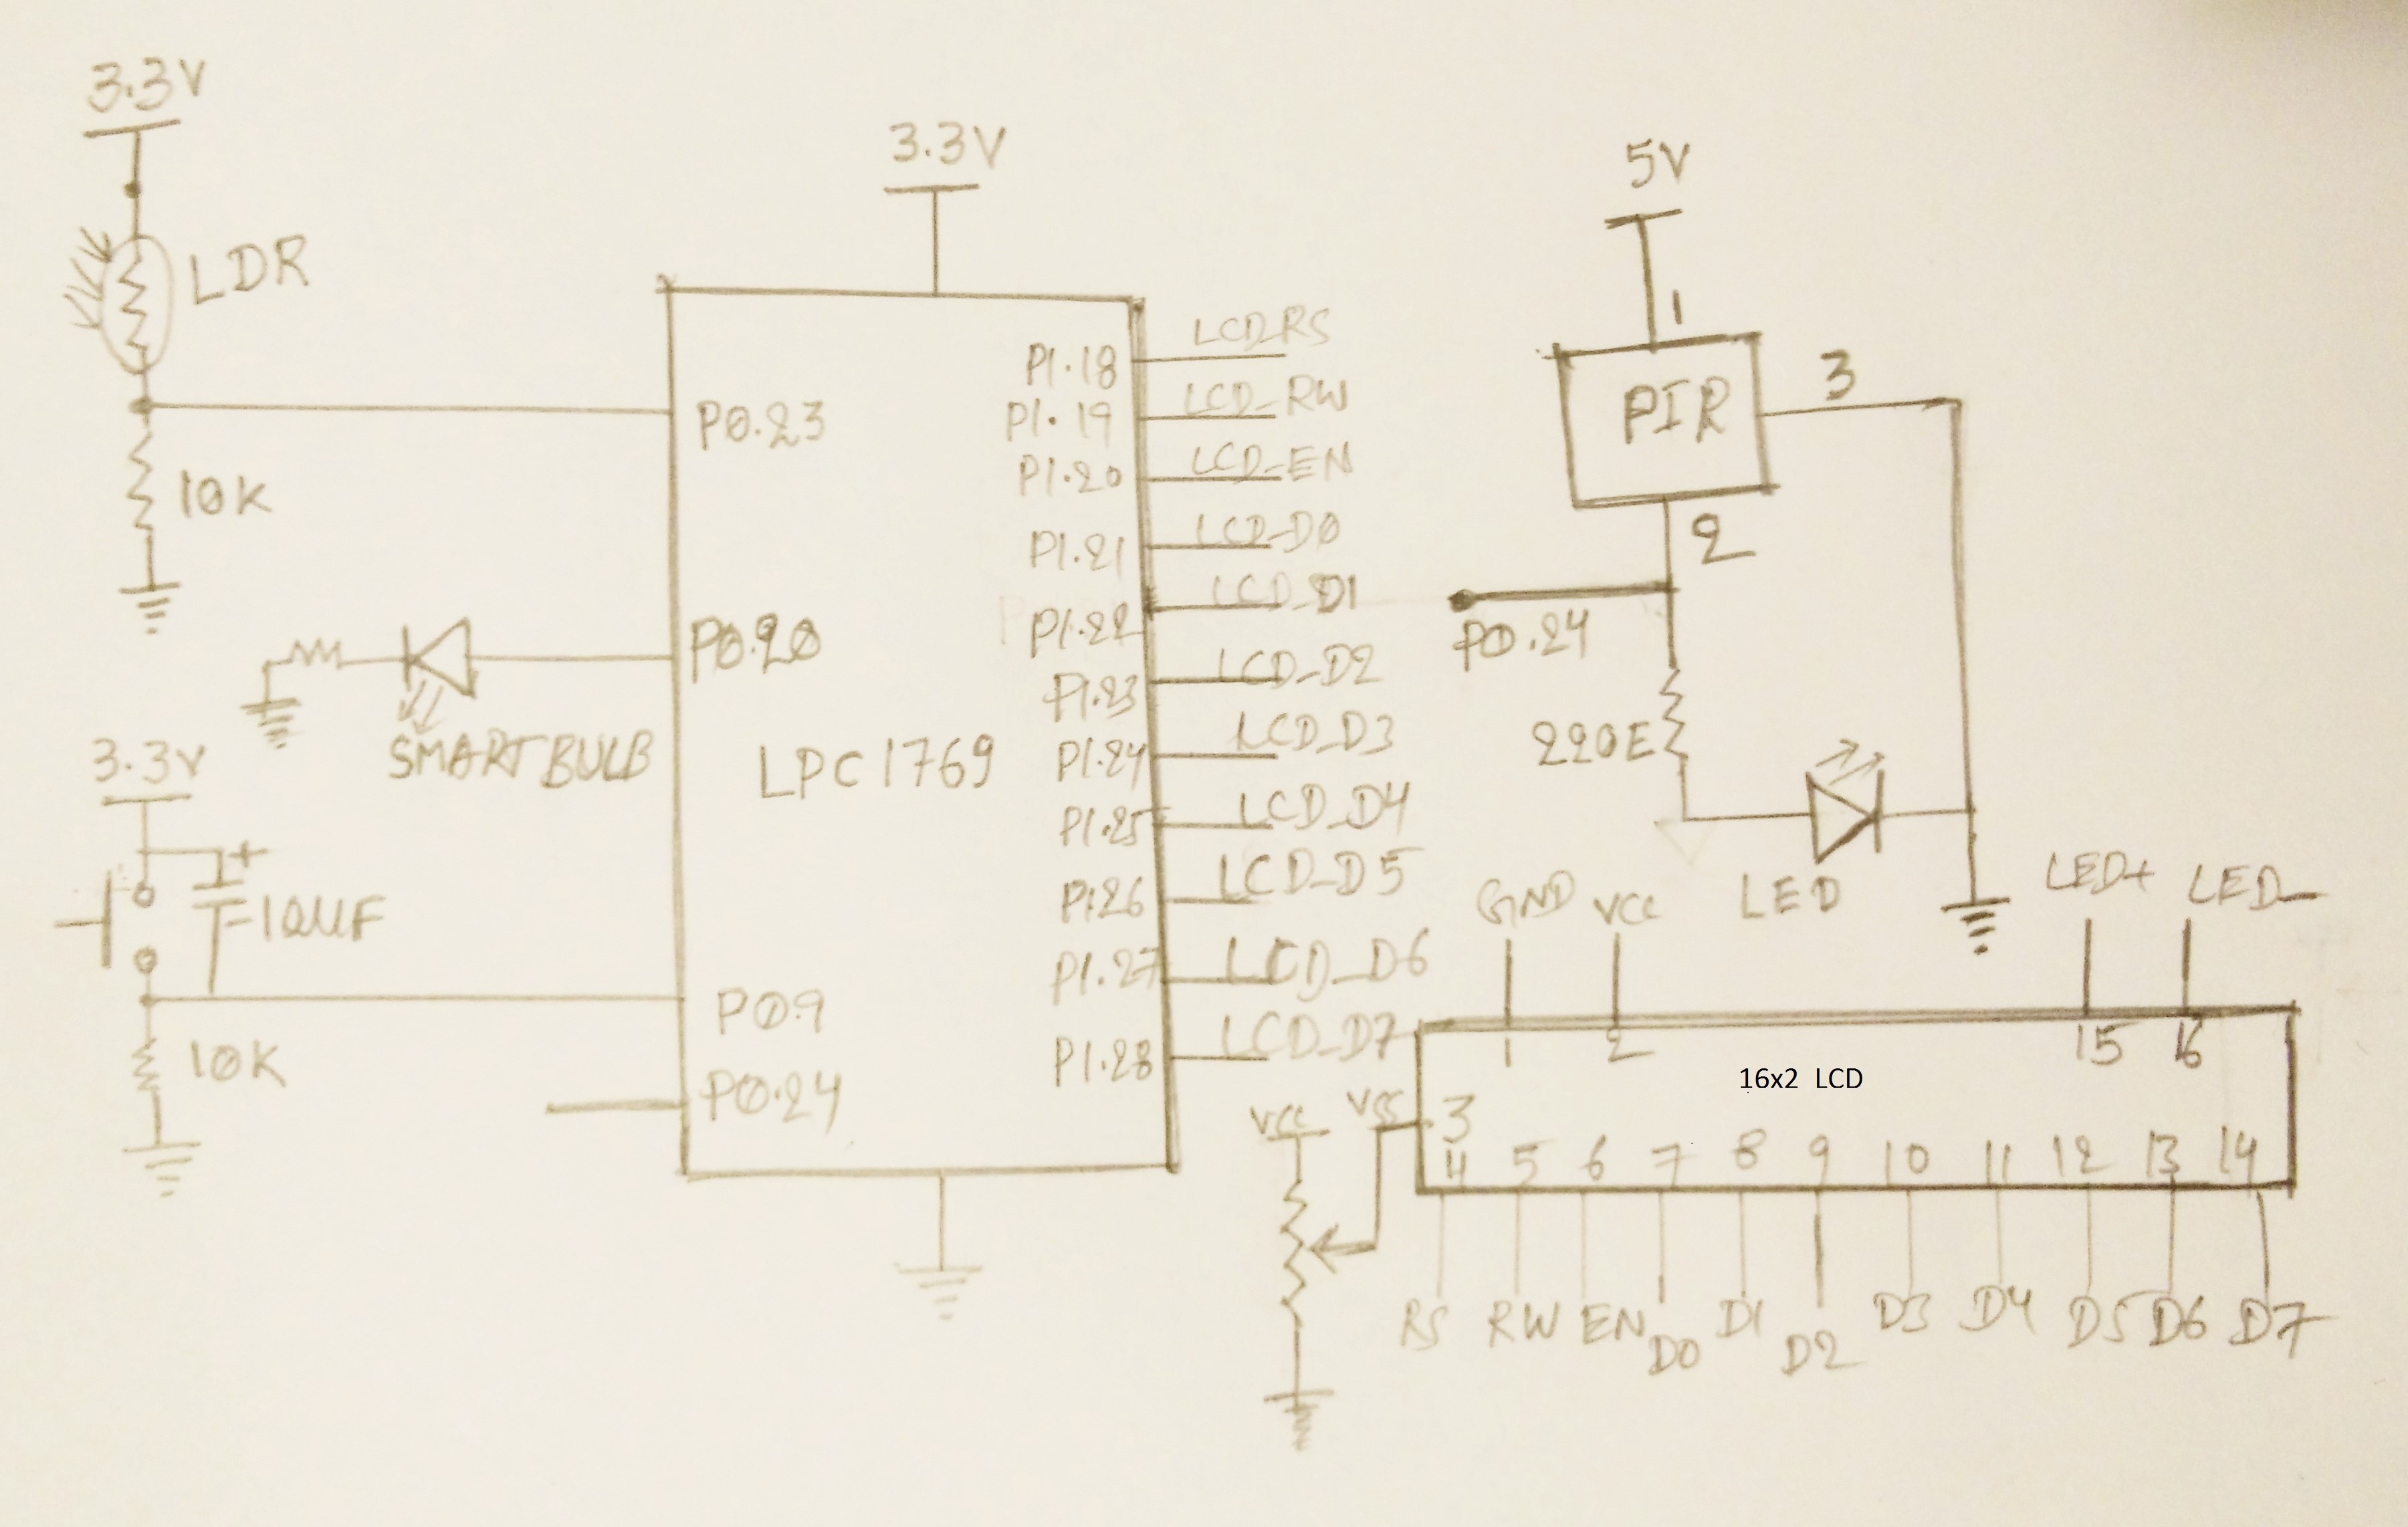 3.3V
LDR
10K
3.3V
P0.23
P0.20
SMART BULB
LPC1769
3.3V
+
10UF
P0.9
10K
P0.24
P1.18
LCD_RS
P1.19
LCD_RW
P1.20
LCD_EN
P1.21
LCD_D0
P1.22
LCD_D1
P1.23
LCD_D2
P1.24
LCD_D3
P1.25
LCD_D4
P1.26
LCD_D5
P1.27
LCD_D6
P1.28
LCD_D7
5V
1
PIR
3
2
P0.24
220E
LED
GND
VCC
LED+
LED-
1
2
15
16
16x2 LCD
VCC
VSS
3
4 5 6 7 8 9 10 11 12 13 14
RS RW EN D0 D1 D2 D3 D4 D5 D6 D7